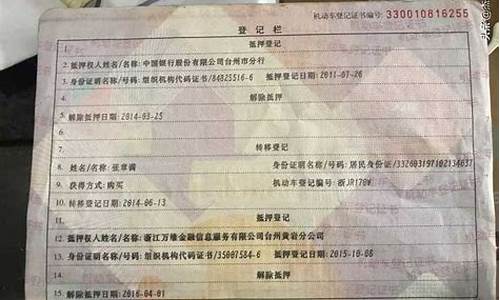 机动车登记证书编号: 330010816255
登记栏
1. 抵押登记
2. 抵押权人姓名/名称: 中国银行股份有限公司台州市分行
3. 身份证明名称/号码: 组织机构代码证书/84825516-6 抵押登记日期: 2011-07-26
4. 解除抵押
5. 解除抵押日期: 2014-03-25
6.
7. 转移登记
8. 姓名/名称: 张章满 身份证明名称/号码: 居民身份证/332603197102134037
9. 获得方式: 购买 机动车登记编号: 浙JR170W
10. 转移登记日期: 2014-06-13
11. 抵押登记
12. 抵押权人姓名/名称: 浙江万维金融信息服务有限公司台州黄岩分公司
13. 身份证明名称/号码: 组织机构代码证书/35007584-6 抵押登记日期: 2015-10-08
14. 解除抵押
15. 解除抵押日期: 2016-04-01